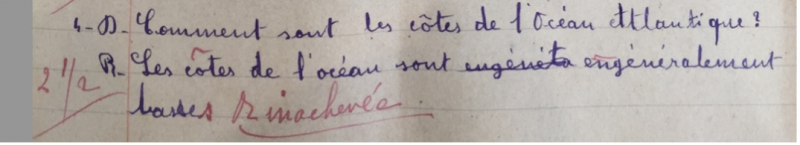 4-D. Comment sont les côtes de l'Océan Atlantique?
2 1/2 R- Les côtes de l'océan sont engénéta engénéralement
basses R inachevée.